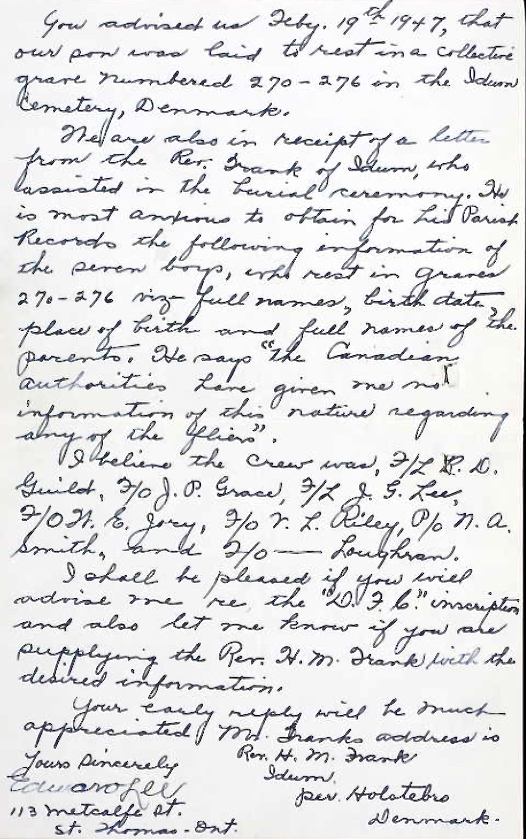 You advised us Feby. 19th 1947, that
our son was laid to rest in a collective
grave numbered 270-276 in the Idum
Cemetery, Denmark.
We are also in receipt of a letter
from the Rev. Frank of Idum, who
assisted in the burial ceremony. He
is most anxious to obtain for his Parish
Records the following information of
the seven boys, who rest in graves
270-276 viz- full names, birth date,
place of birth and full names of the
parents. He says "the Canadian
authorities have given me no
information of this nature regarding
any of the fliers".
I believe the crew was, F/L R. D.
Guild, F/O J. P. Grace, F/L J. G. Lee,
F/O W. E. Jory, F/O V. L. Riley, P/o N. A.
Smith, and F/O — Loughran.
I shall be pleased if you will
advise me re the "D.F.C." inscription
and also let me know if you are
supplying the Rev. H. M. Frank with the
desired information.
Your early reply will be much
appreciated Mr. Franks address is
Rev. H. M. Frank
Idum.
per. Holstebro
Denmark.
Yours Sincerely
Edward Lee
113 Metcalfe St.
St. Thomas-Ont.